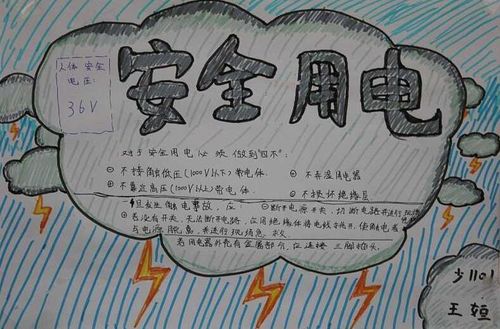 安全用电
人体安全
电压:
36V
对于安全用电必须做到"四不":
①不接触低压(1000V以下)带电体.
②不靠近高压(1000V以上)带电体.
③不弄湿用电器
④不损坏绝缘层
旦发生触电事故, 应①断开电源开关, 切断电路并进行现场
②若没有开关, 无法断开电路, 应用绝缘体将电线挑开, 使触电者
与电源脱离, 并进行现场急救.
若用电器外壳有金属部分, 应连接三脚插头.
少1101
王姮